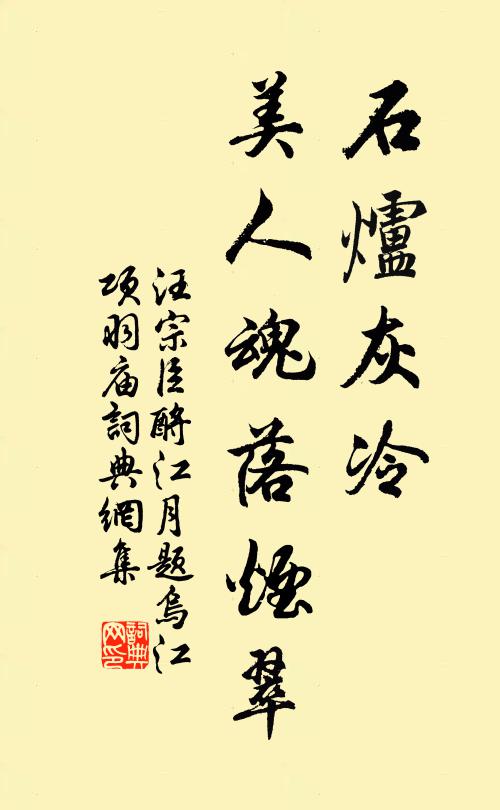 石爐灰冷
美人魂落煙翠
汪宗臣酹江月題烏江
项羽庙詞典網集
詞典
网印